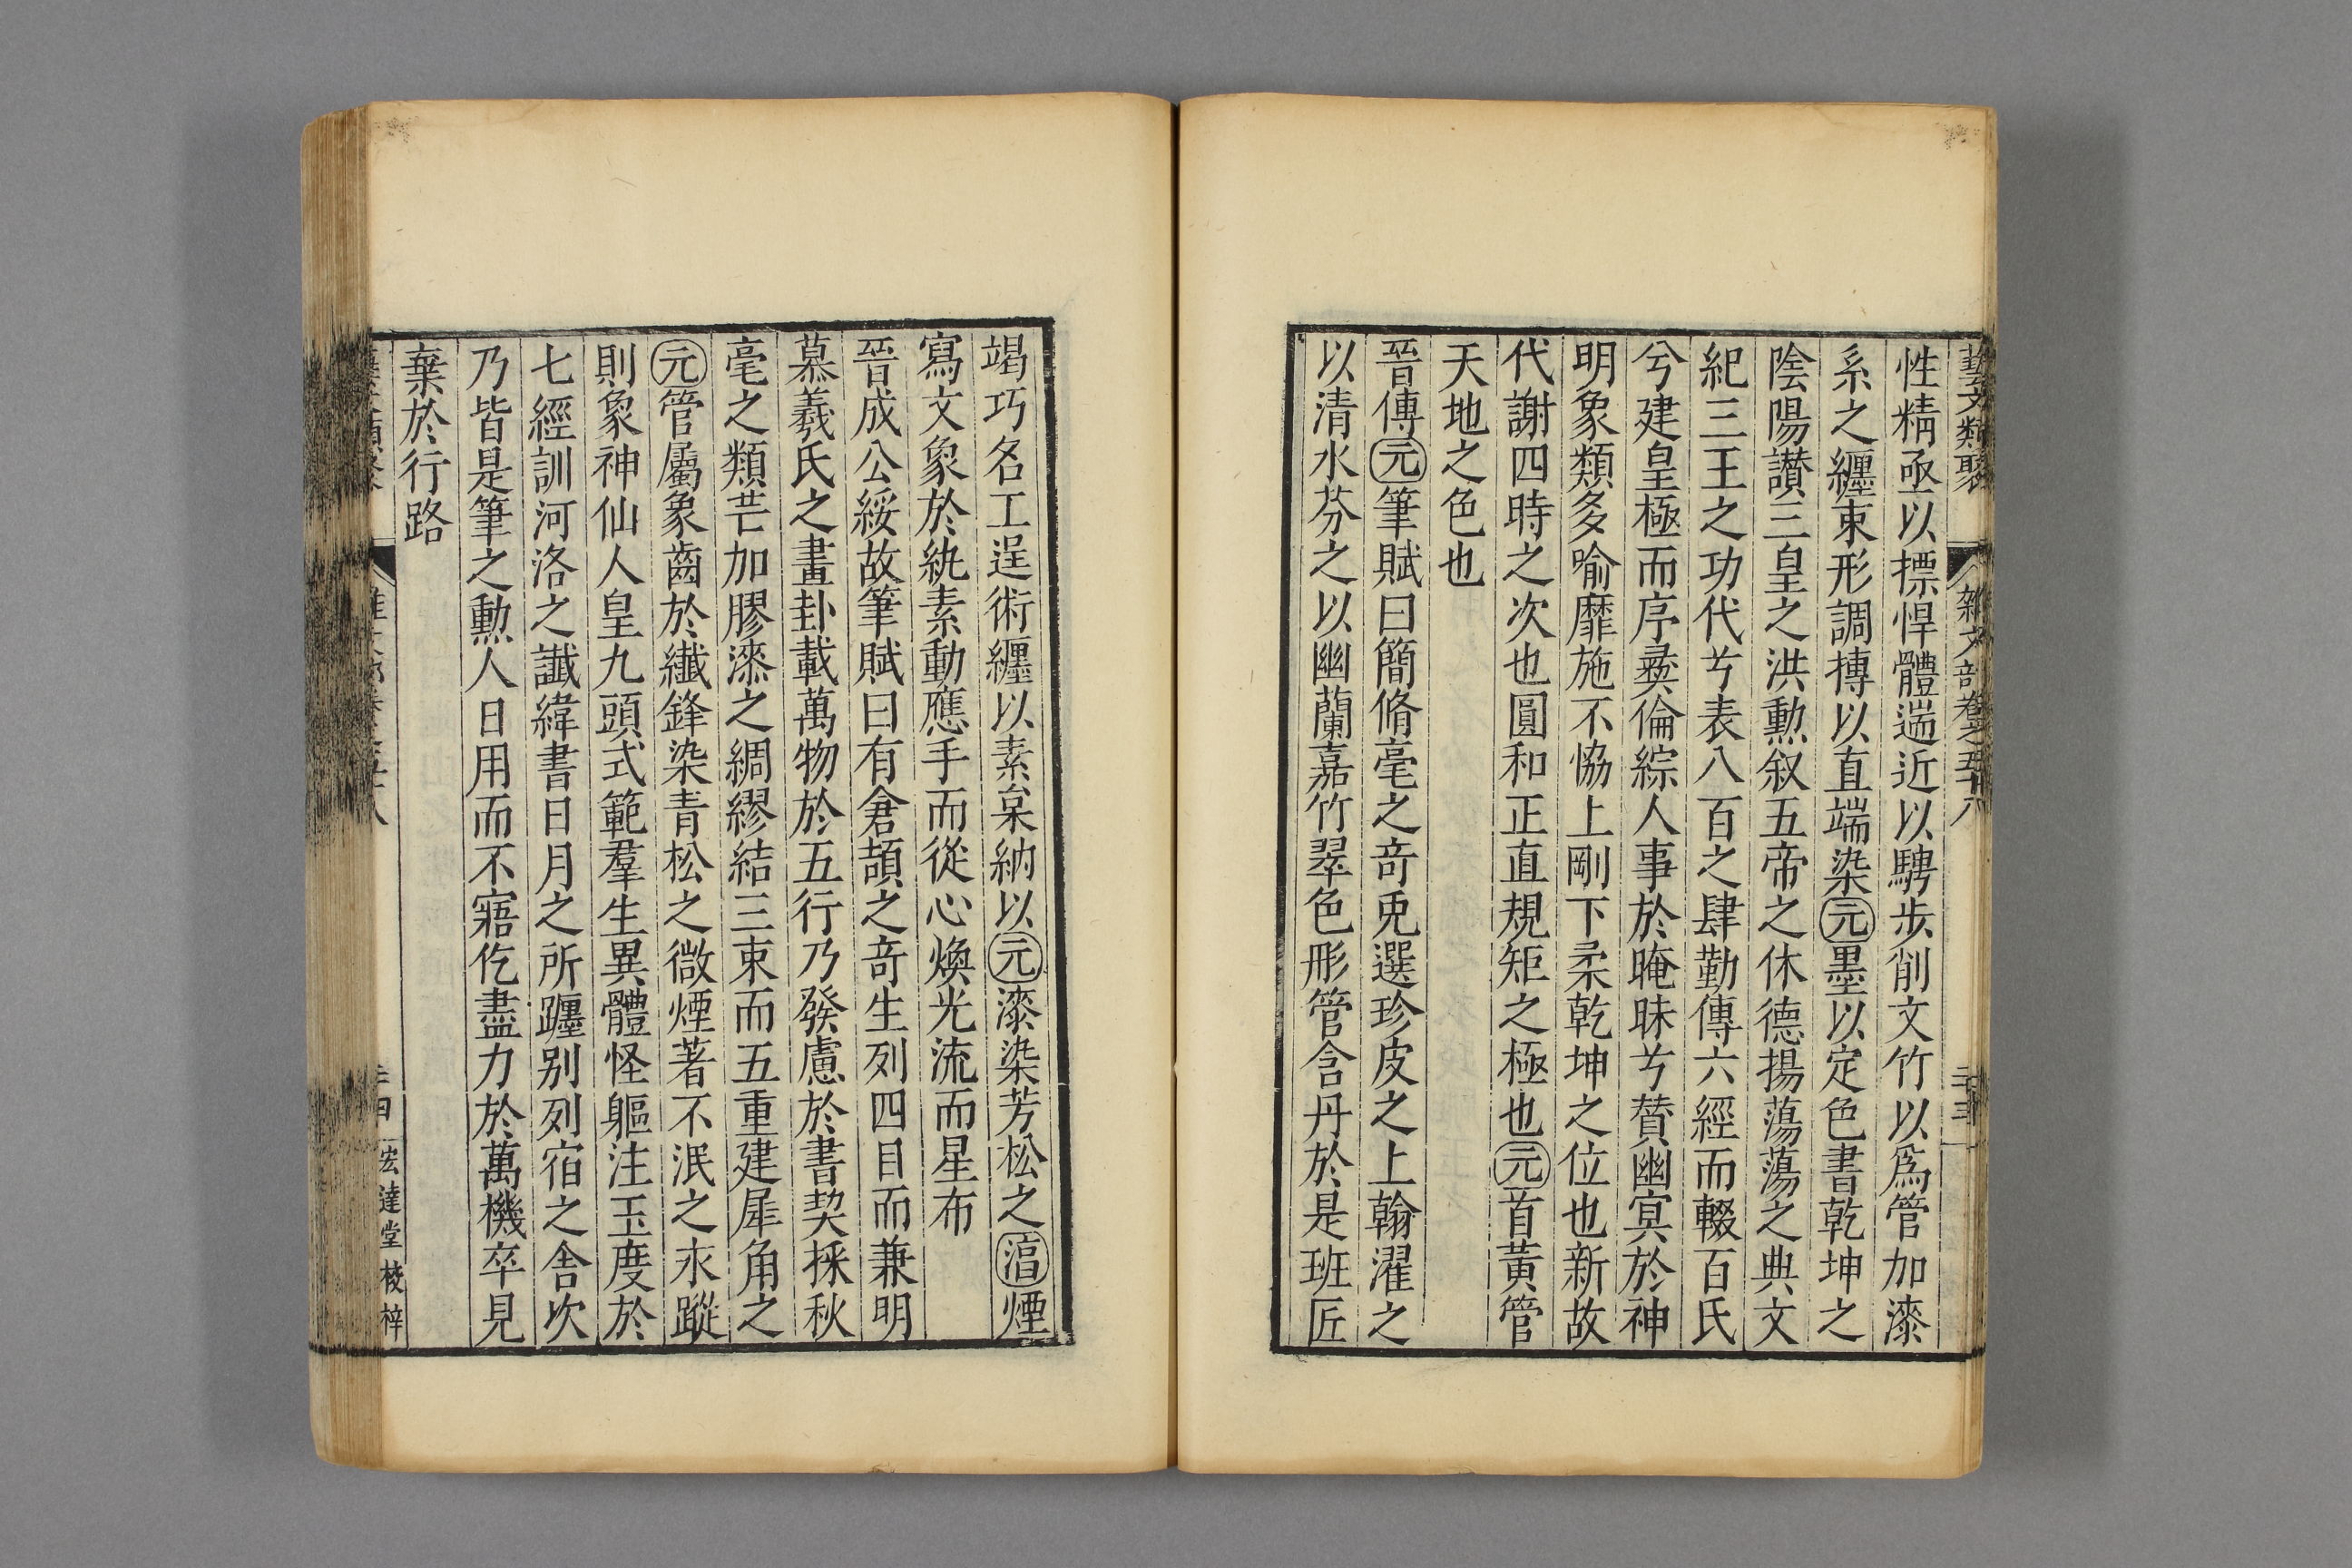 藝文類聚 雜文部卷之五十八 二十三
性精亟以摽悍體遄近以騁步削文竹以爲管加漆
系之纏束形調摶以直端染元墨以定色書乾坤之
陰陽讃三皇之洪勲叙五帝之休德揚蕩蕩之典文
紀三王之功代兮表八百之肆勤傳六經而輟百氏
兮建皇極而序彝倫綜人事於晻昧兮賛幽冥於神
明象類多喻靡施不恊上剛下柔乾坤之位也新故
代謝四時之次也圓和正直規矩之極也元首黃管
天地之色也
晉傅元筆賦曰簡脩毫之竒兎選珍皮之上翰濯之
以清水芬之以幽蘭嘉竹翠色彤管含丹於是班匠
竭巧名工逞術纏以素枲納以元漆染芳松之湻煙
寫文象於紈素動應手而從心煥光流而星布
晉成公綏故筆賦曰有倉頡之竒生列四目而兼明
慕羲氏之畫卦載萬物於五行乃發慮於書契採秋
毫之類芒加膠漆之綢繆結三束而五重建犀角之
元管屬象齒於纎鋒染青松之微煙著不泯之永蹤
則象神仙人皇九頭式範羣生異體怪軀注玉度於
七經訓河洛之讖緯書日月之所躔别列宿之舍次
乃皆是筆之勲人日用而不寤仡盡力於萬機卒見
棄於行路
宏達堂校梓